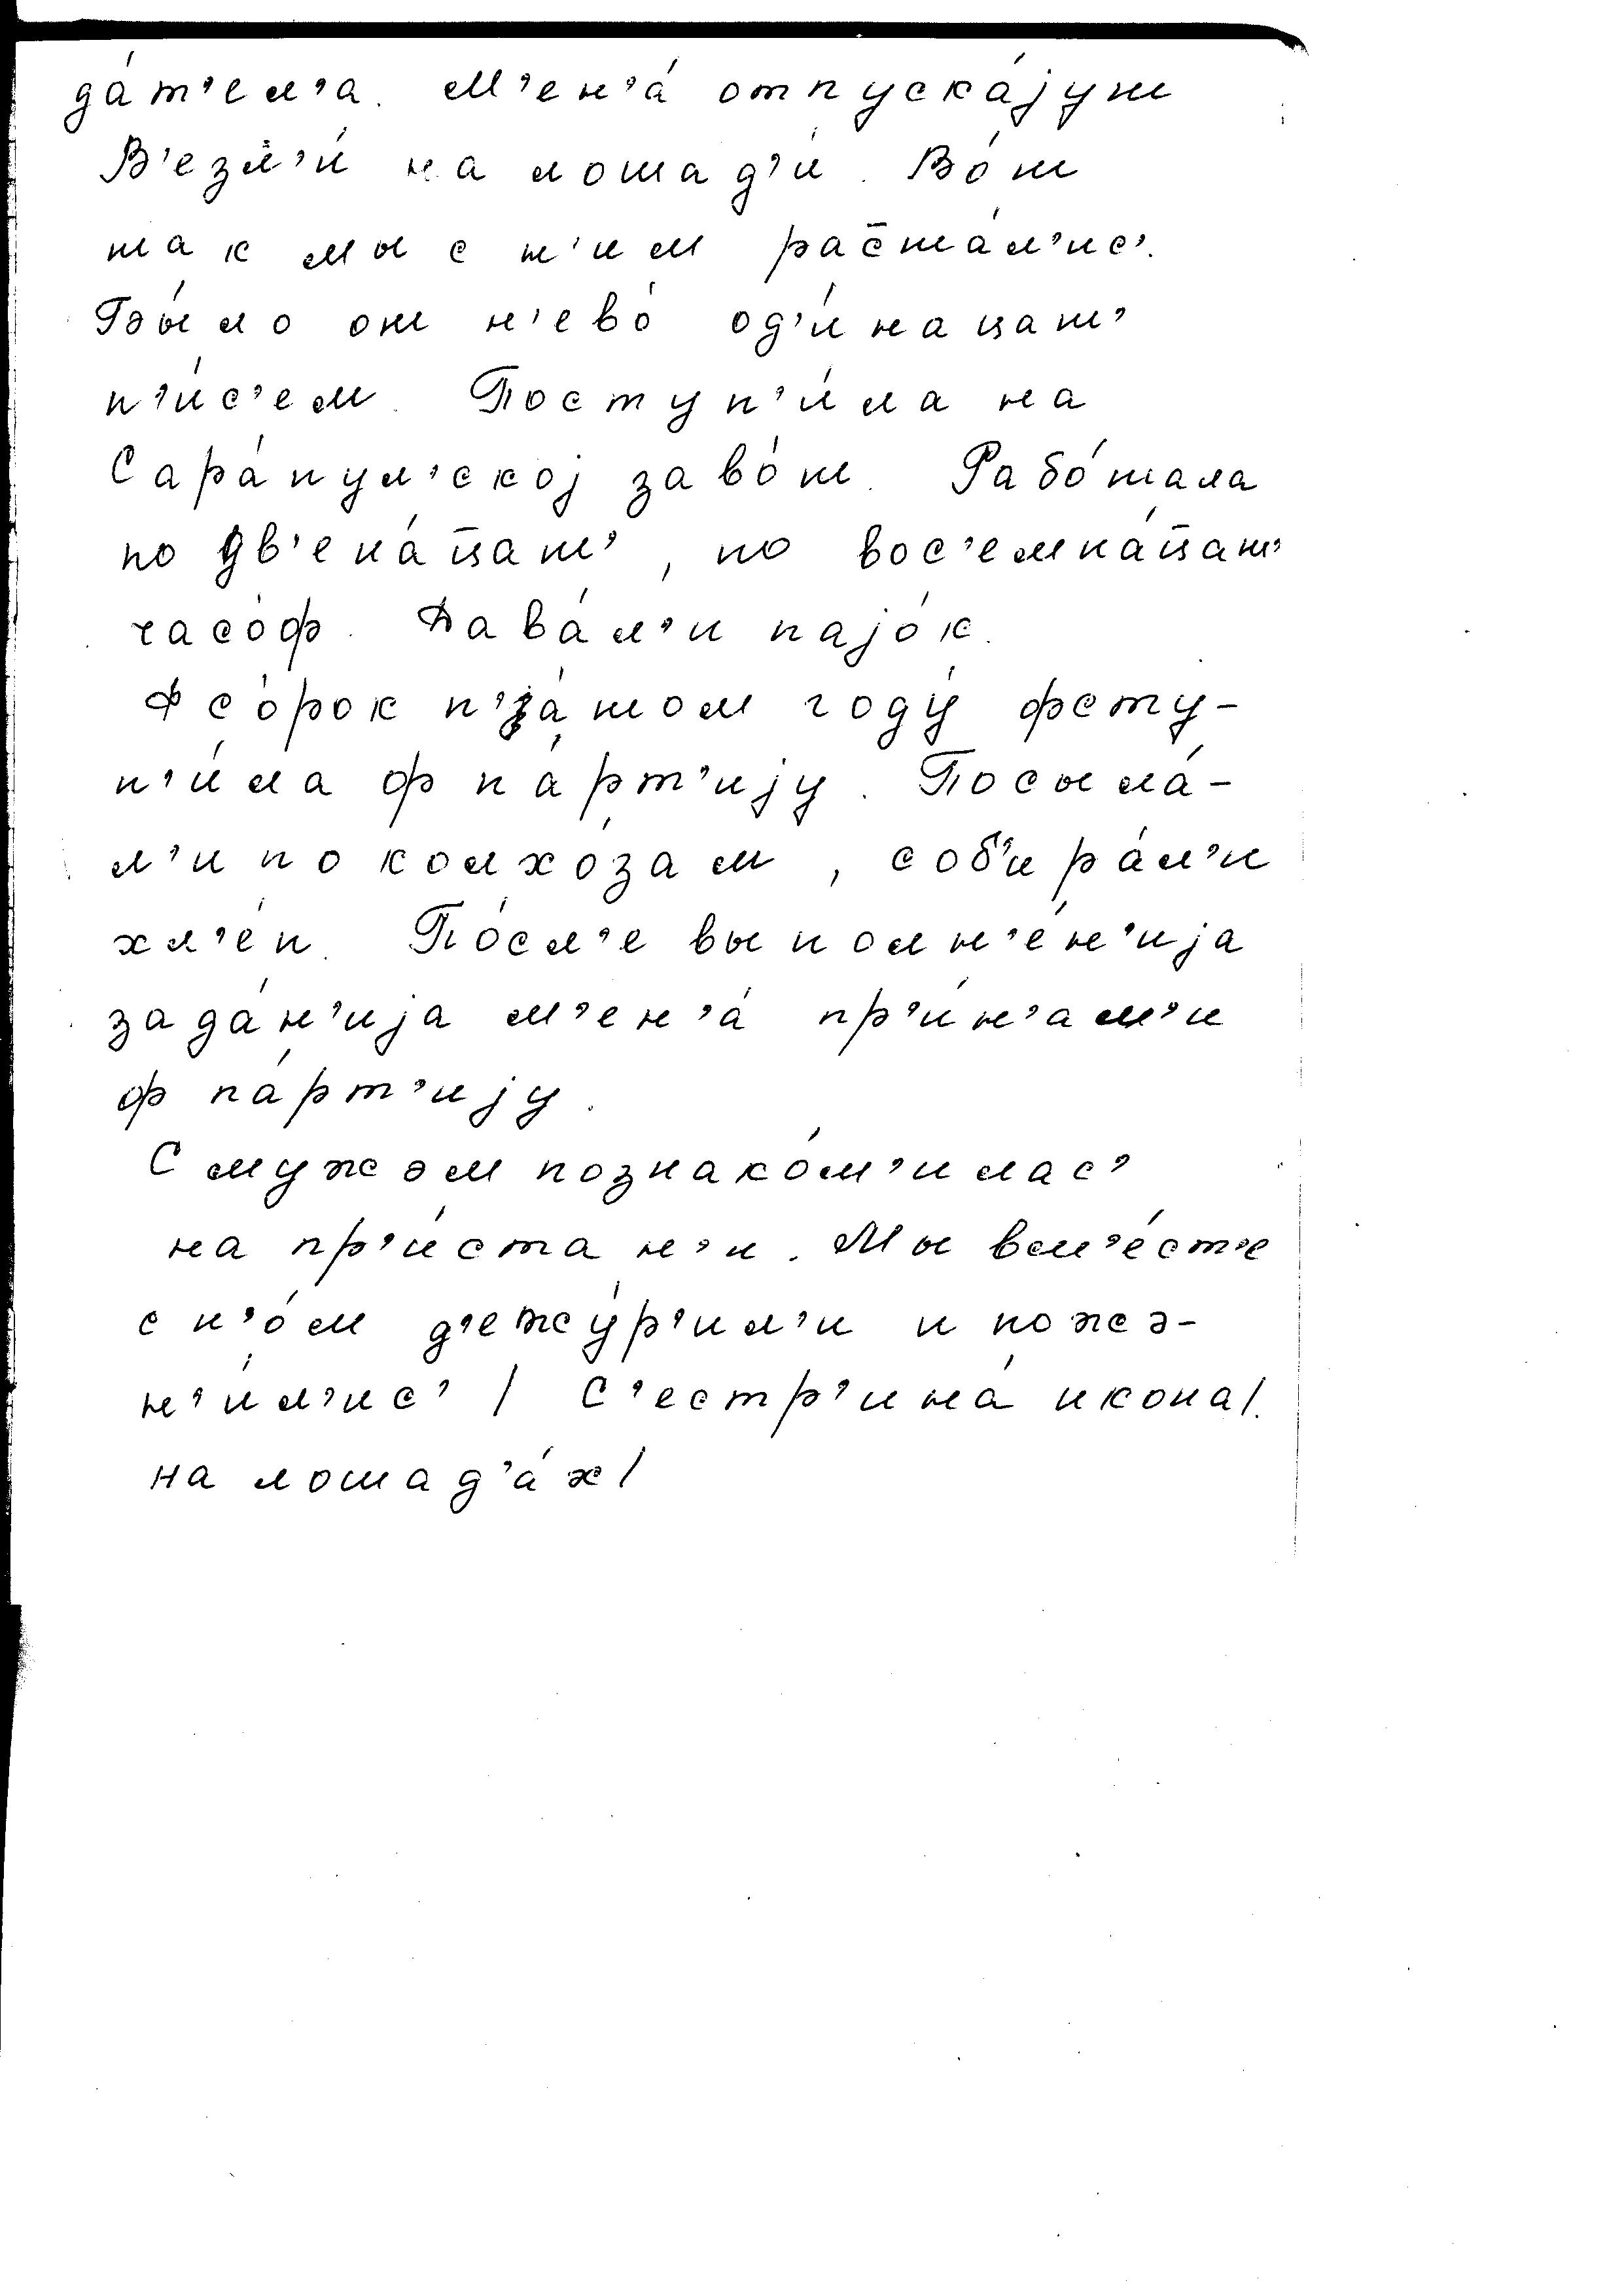 да́т'ел'а. М'ен'а́ отпуска́јут
В'езл'и́ на лошад'и́. Во́т
так мы с н'им рас̄та́л'ис'.
Бы́ло от н'ево́ од'и́нацат'
п'и́с'ем. Поступ'и́ла на
Сара́пул'ској заво́т. Рабо́тала
по дв'ена́ц̄ат', по вос'емна́ц̄ат'
часо́ф. Дава́л'и пајо́к.
Ф со́рок п'а́том году́ фсту-
п'и́ла ф па́рт'ију. Посыла́-
л'и по колхо́зам, соб'ира́л'и
хл'е́п. По́сл'е выполн'е́н'ија
зада́н'ија м'ен'а́ пр'и́н'ал'и
ф па́рт'ију.
С мужэм познако́м'илас'
на пр'и́стан'и. Мы вм'е́ст'е
с н'о́м д'ежу́р'ил'и и пожэ-
н'и́л'ис' / С'естр'ина́ икона/.
на лошад'а́х/